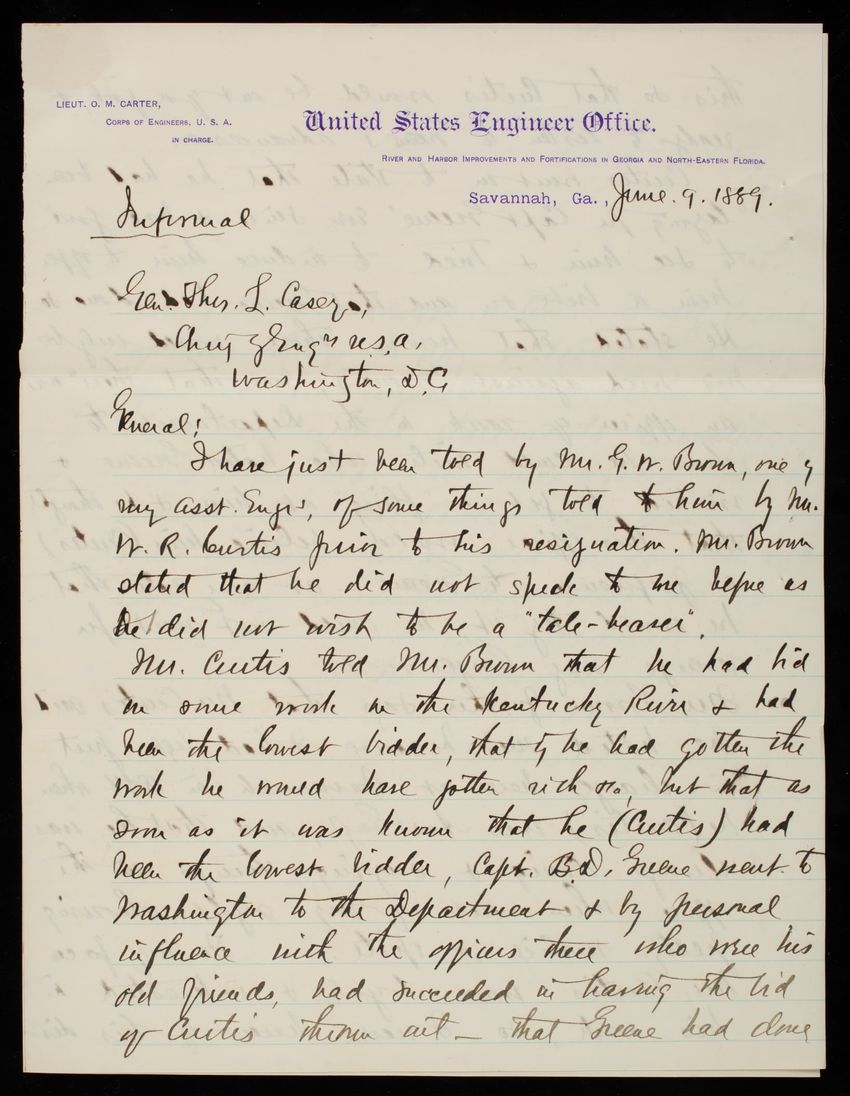 LIEUT. O. M. CARTER,
CORPS OF ENGINEERS, U. S. A.
IN CHARGE.
United States Engineer Office.
RIVER AND HARBOR IMPROVEMENTS AND FORTIFICATIONS IN GEORGIA AND NORTH-EASTERN FLORIDA.
Savannah, Ga., June. 9. 1889.
Informal
Gen. Thos. L. Casey,
Chief of Engrs U.S.A.
Washington, D.C.
General:
I have just been told by Mr. G. W. Brown, one of
my asst. Engrs, of some things told to him by Mr.
W. R. Curtis prior to his resignation. Mr. Brown
stated that he did not speak to me before as
he did not wish to be a "tale-bearer".
Mr. Curtis told Mr. Brown that he had bid
on some work on the Kentucky River & had
been the lowest bidder, that if he had gotten the
work he would have gotten rich &c, but that as
soon as it was known that he (Curtis) had
been the lowest bidder, Capt. B.D. Greene went to
Washington to the Department & by personal
influence with the officers there who were his
old friends, had succeeded in having the bid
of Curtis thrown out — that Greene had done